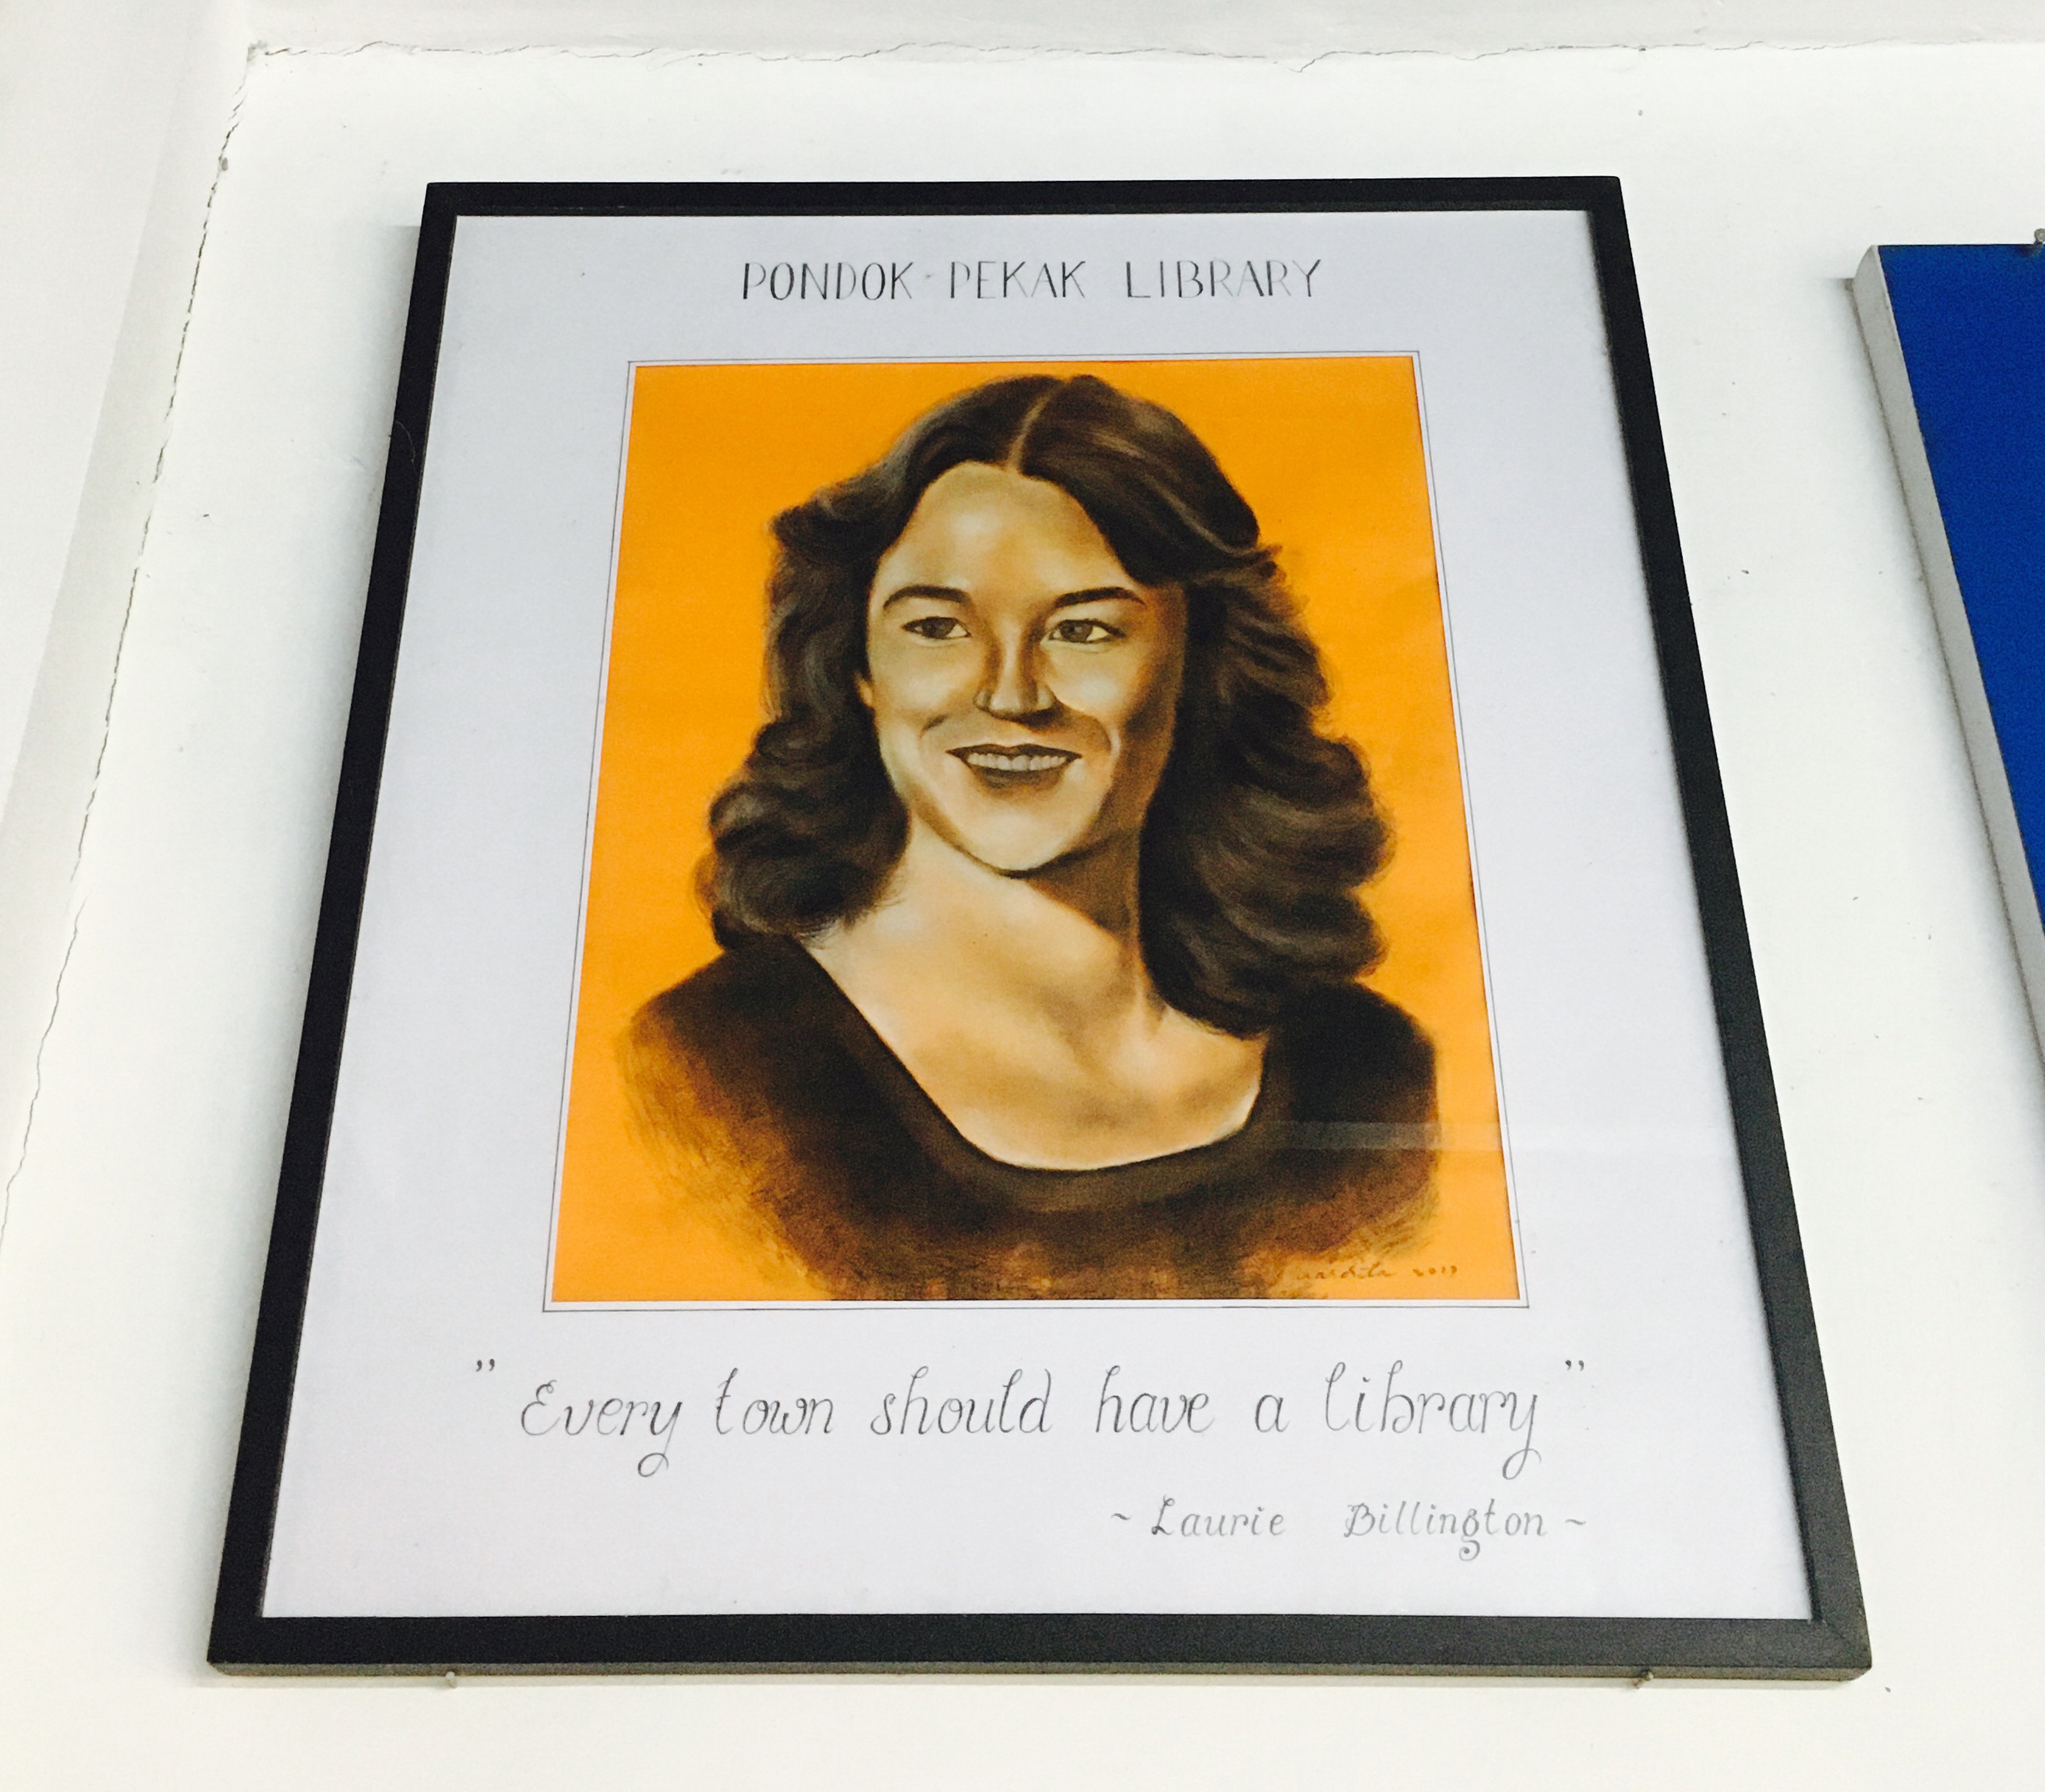 PONDOK PEKAK LIBRARY
" Every town should have a library "
~ Laurie Billington ~